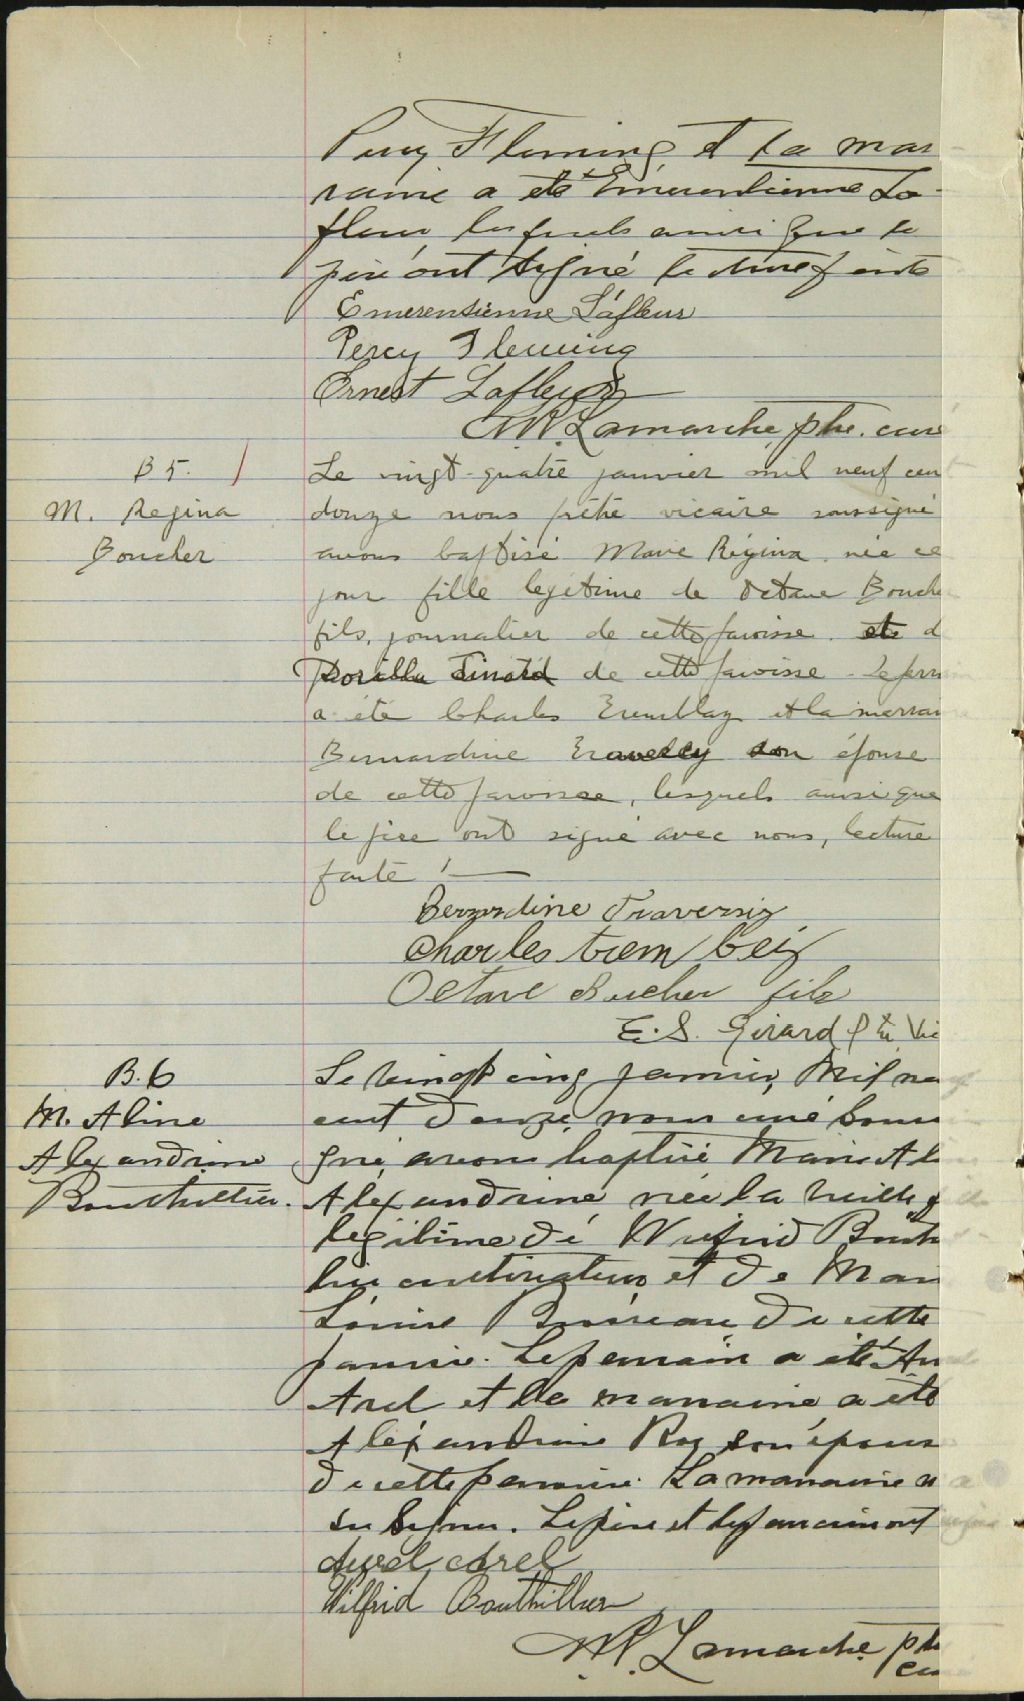 Percy Fleming et la mar
raine a été Emerentienne La
fleur lesquels ainsi que le
père ont signé lecture faite
Emerensienne Lafleur
Percy Fleming
Ernest Lafleur
Lamarche, ptre. curé
B 5.
M. Regina
Boucher
Le vingt-quatre janvier mil neuf cent
douze nous prêtre vicaire soussigné
avons baptisé Marie Régina née ce
jour fille legitime de Octave Bouche
fils, journalier de cette paroisse. et d
de cette paroisse. Le parr
a été Charles Tremblay et la marrai
Bernardine Traversy son épouse
de cette paroisse, lesquels ainsi que
le père ont signé avec nous, lecture
faite !
Bernardine Traversiy
Charles trem bley
Octave Bucher fils
E. S. Girard Ptre. Vic
B. 6
M. Aline
Alexandrine
Bouthillier.
Le vingt cinq janvier, Mil neu
cent douze, nous curé sous
gné, avons baptisé Marie Al
Alexandrine, née la veille f
legitime de Wilfrid Bouth
lier cultivateur et de Mari
Louise de cette
paroisse. Le parrain a été
Arel et la marraine a été
Alexandrine Roy son épouse
de cette paroisse. La marraine n
su signer. Le père et le parrain ont
Arel
Wilfrid Bouthillier
Lamarche ptre
curé